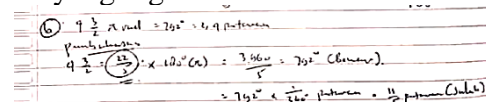 (b) 4 2/5 π rad = 792° = 2,4 putaran
pembahasan
4 2/5 = 22/5 × 180° (π) = 3.960/5 = 792° (benar).
= 792° × 1/360° putaran = 11/5 putaran (salah)